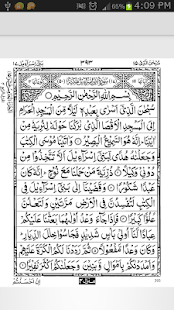 4:09 PM
٣٩٣
بِسْمِ اللّٰهِ الرَّحْمٰنِ الرَّحِيْمِ
سُبْحٰنَ الَّذِيْٓ اَسْرٰى بِعَبْدِهٖ لَيْلًا مِّنَ الْمَسْجِدِ الْحَرَامِ
اِلَى الْمَسْجِدِ الْاَقْصَا الَّذِيْ بٰرَكْنَا حَوْلَهٗ لِنُرِيَهٗ مِنْ
اٰيٰتِنَا اِنَّهٗ هُوَ السَّمِيْعُ الْبَصِيْرُ وَاٰتَيْنَا مُوْسَى الْكِتٰبَ
وَجَعَلْنٰهُ هُدًى لِّبَنِيْٓ اِسْرَآءِيْلَ اَلَّا تَتَّخِذُوْا مِنْ
دُوْنِيْ وَكِيْلًا ذُرِّيَّةَ مَنْ حَمَلْنَا مَعَ نُوْحٍ اِنَّهٗ كَانَ
عَبْدًا شَكُوْرًا وَقَضَيْنَآ اِلٰى بَنِيْٓ اِسْرَآءِيْلَ فِي
الْكِتٰبِ لَتُفْسِدُنَّ فِي الْاَرْضِ مَرَّتَيْنِ وَلَتَعْلُنَّ
عُلُوًّا كَبِيْرًا فَاِذَا جَآءَ وَعْدُ اُوْلٰىهُمَا بَعَثْنَا عَلَيْكُمْ
عِبَادًا لَّنَآ اُولِيْ بَاْسٍ شَدِيْدٍ فَجَاسُوْا خِلٰلَ الدِّيَارِ
وَكَانَ وَعْدًا مَّفْعُوْلًا ثُمَّ رَدَدْنَا لَكُمُ الْكَرَّةَ عَلَيْهِمْ
وَاَمْدَدْنٰكُمْ بِاَمْوَالٍ وَّبَنِيْنَ وَجَعَلْنٰكُمْ اَكْثَرَ نَفِيْرًا